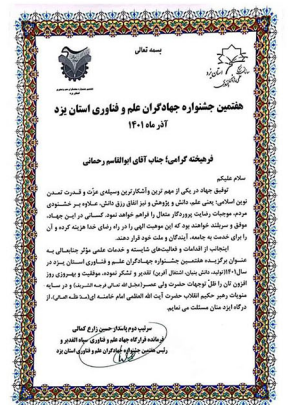 بسمه تعالی
هفتمین جشنواره جهادگران علم و فناوری استان یزد
آذر ماه ۱۴۰۱
فرهیخته گرامی؛ جناب آقای ابوالقاسم رحمانی
سلام علیکم
توفیق جهاد در یکی از مهم ترین وآشکارترین وسیله‌ی عزّت و قدرت تمدن
نوین اسلامی؛ یعنی علم، دانش و پژوهش و نیز انفاق رزق دانش، علاوه بر خشنودی
مردم، موجبات رضایت پروردگار متعال را فراهم خواهد نمود. کسانی در این جهاد،
موفق و سربلند خواهند بود که این موهبت الهی را در راه رضای خدا هزینه کرده و آن
را برای خدمت به جامعه، آیندگان و ملت خود قرار دهند.
اینجانب از اقدامات و فعالیت‌های شایسته و خدمات علمی مؤثر جنابعالی به
عنوان برگزیده هفتمین جشنواره جهادگران علم و فناوری استان یزد در
سال۱۴۰۱(تولید، دانش بنیان، اشتغال آفرین) تقدیر و تشکر نموده، موفقیت و بهروزی روز
افزون تان را ظل توجهات حضرت ولی عصر(عجل الله تعالی فرجه الشریف) و در سایه
منویات رهبر حکیم انقلاب حضرت آیت الله العظمی امام خامنه ای(مد ظله العالی)، از
درگاه ایزد منان مسئلت می نمایم.
سرتیپ دوم پاسدار حسین زارع کمالی
فرمانده قرارگاه جهاد علم و فناوری سپاه الغدیر و
رئیس هفتمین جشنواره جهادگران علم و فناوری استان یزد